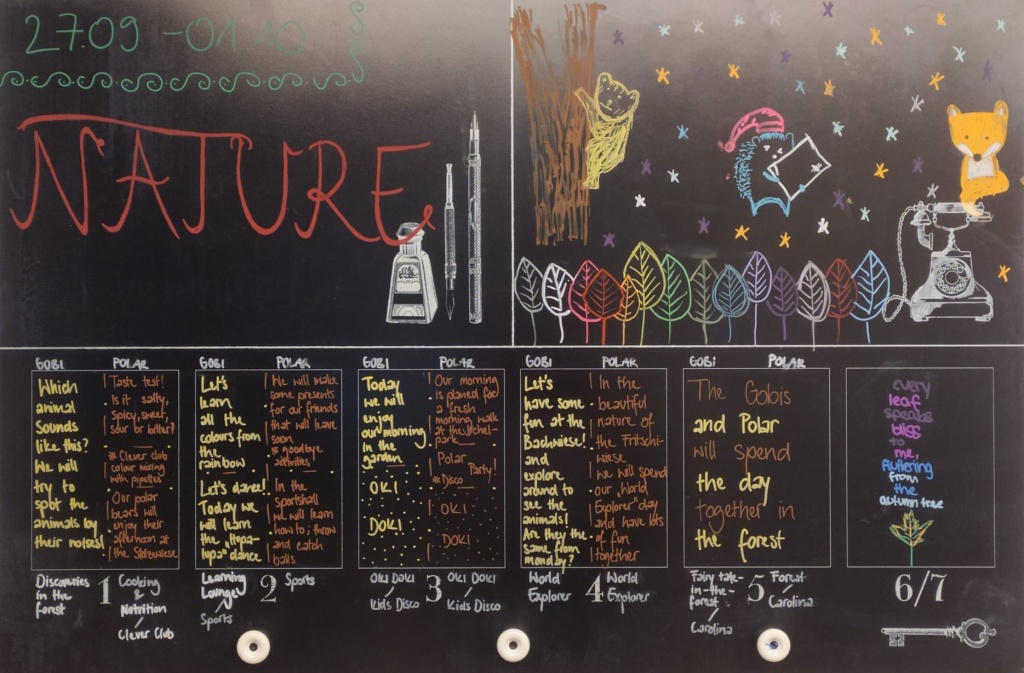 27.09 - 01.10
NATURE
GOBI
POLAR
Which
animal
sounds
like this?
We will
try to
spot the
animals by
their noises!
Taste test!
Is it salty,
spicy, sweet,
sour or bitter?
* Clever club
colour mixing
with pipettes
Our polar
bears will
enjoy their
afternoon at
the
Discoveries
in the
forest
1
Cooking
&
Nutrition
/
Clever Club
GOBI
POLAR
Let's
learn
all the
colours from
the
rainbow.
Let's dance!
Today we
will learn
the "lupa-
lupa" dance
We will make
some presents
for our friends
that will leave
soon
* goodbye
activities
In the
sportshall
we will learn
how to; throw
and catch
balls
Learning
Lounge
/
Sports
2
Sports
GOBI
POLAR
Today
we will
enjoy
our morning
in the
garden
OKI
DOKI
Our morning
is planed for
a fresh
morning walk
at the
park
Polar
Party!
* Disco
OKI
DOKI
OKI DOKI
/
Kids Disco
3
OKI DOKI
/
Kids Disco
GOBI
POLAR
Let's
have some
fun at the
Bachwiese!
and
explore
around to
see the
animals!
Are they the
same from
monday?
In the
beautiful
nature of
the Fritschi-
wiese
we will spend
our World
Explorer day
and have lots
of fun
together
World
Explorer
4
World
Explorer
GOBI
POLAR
The Gobis
and Polar
will spend
the day
together in
the forest
Fairy tale-
in-the-
forest
/
Carolina
5
Forest
/
Carolina
every
leaf
speaks
bliss
to
me,
fluttering
from
the
autumn tree
6/7